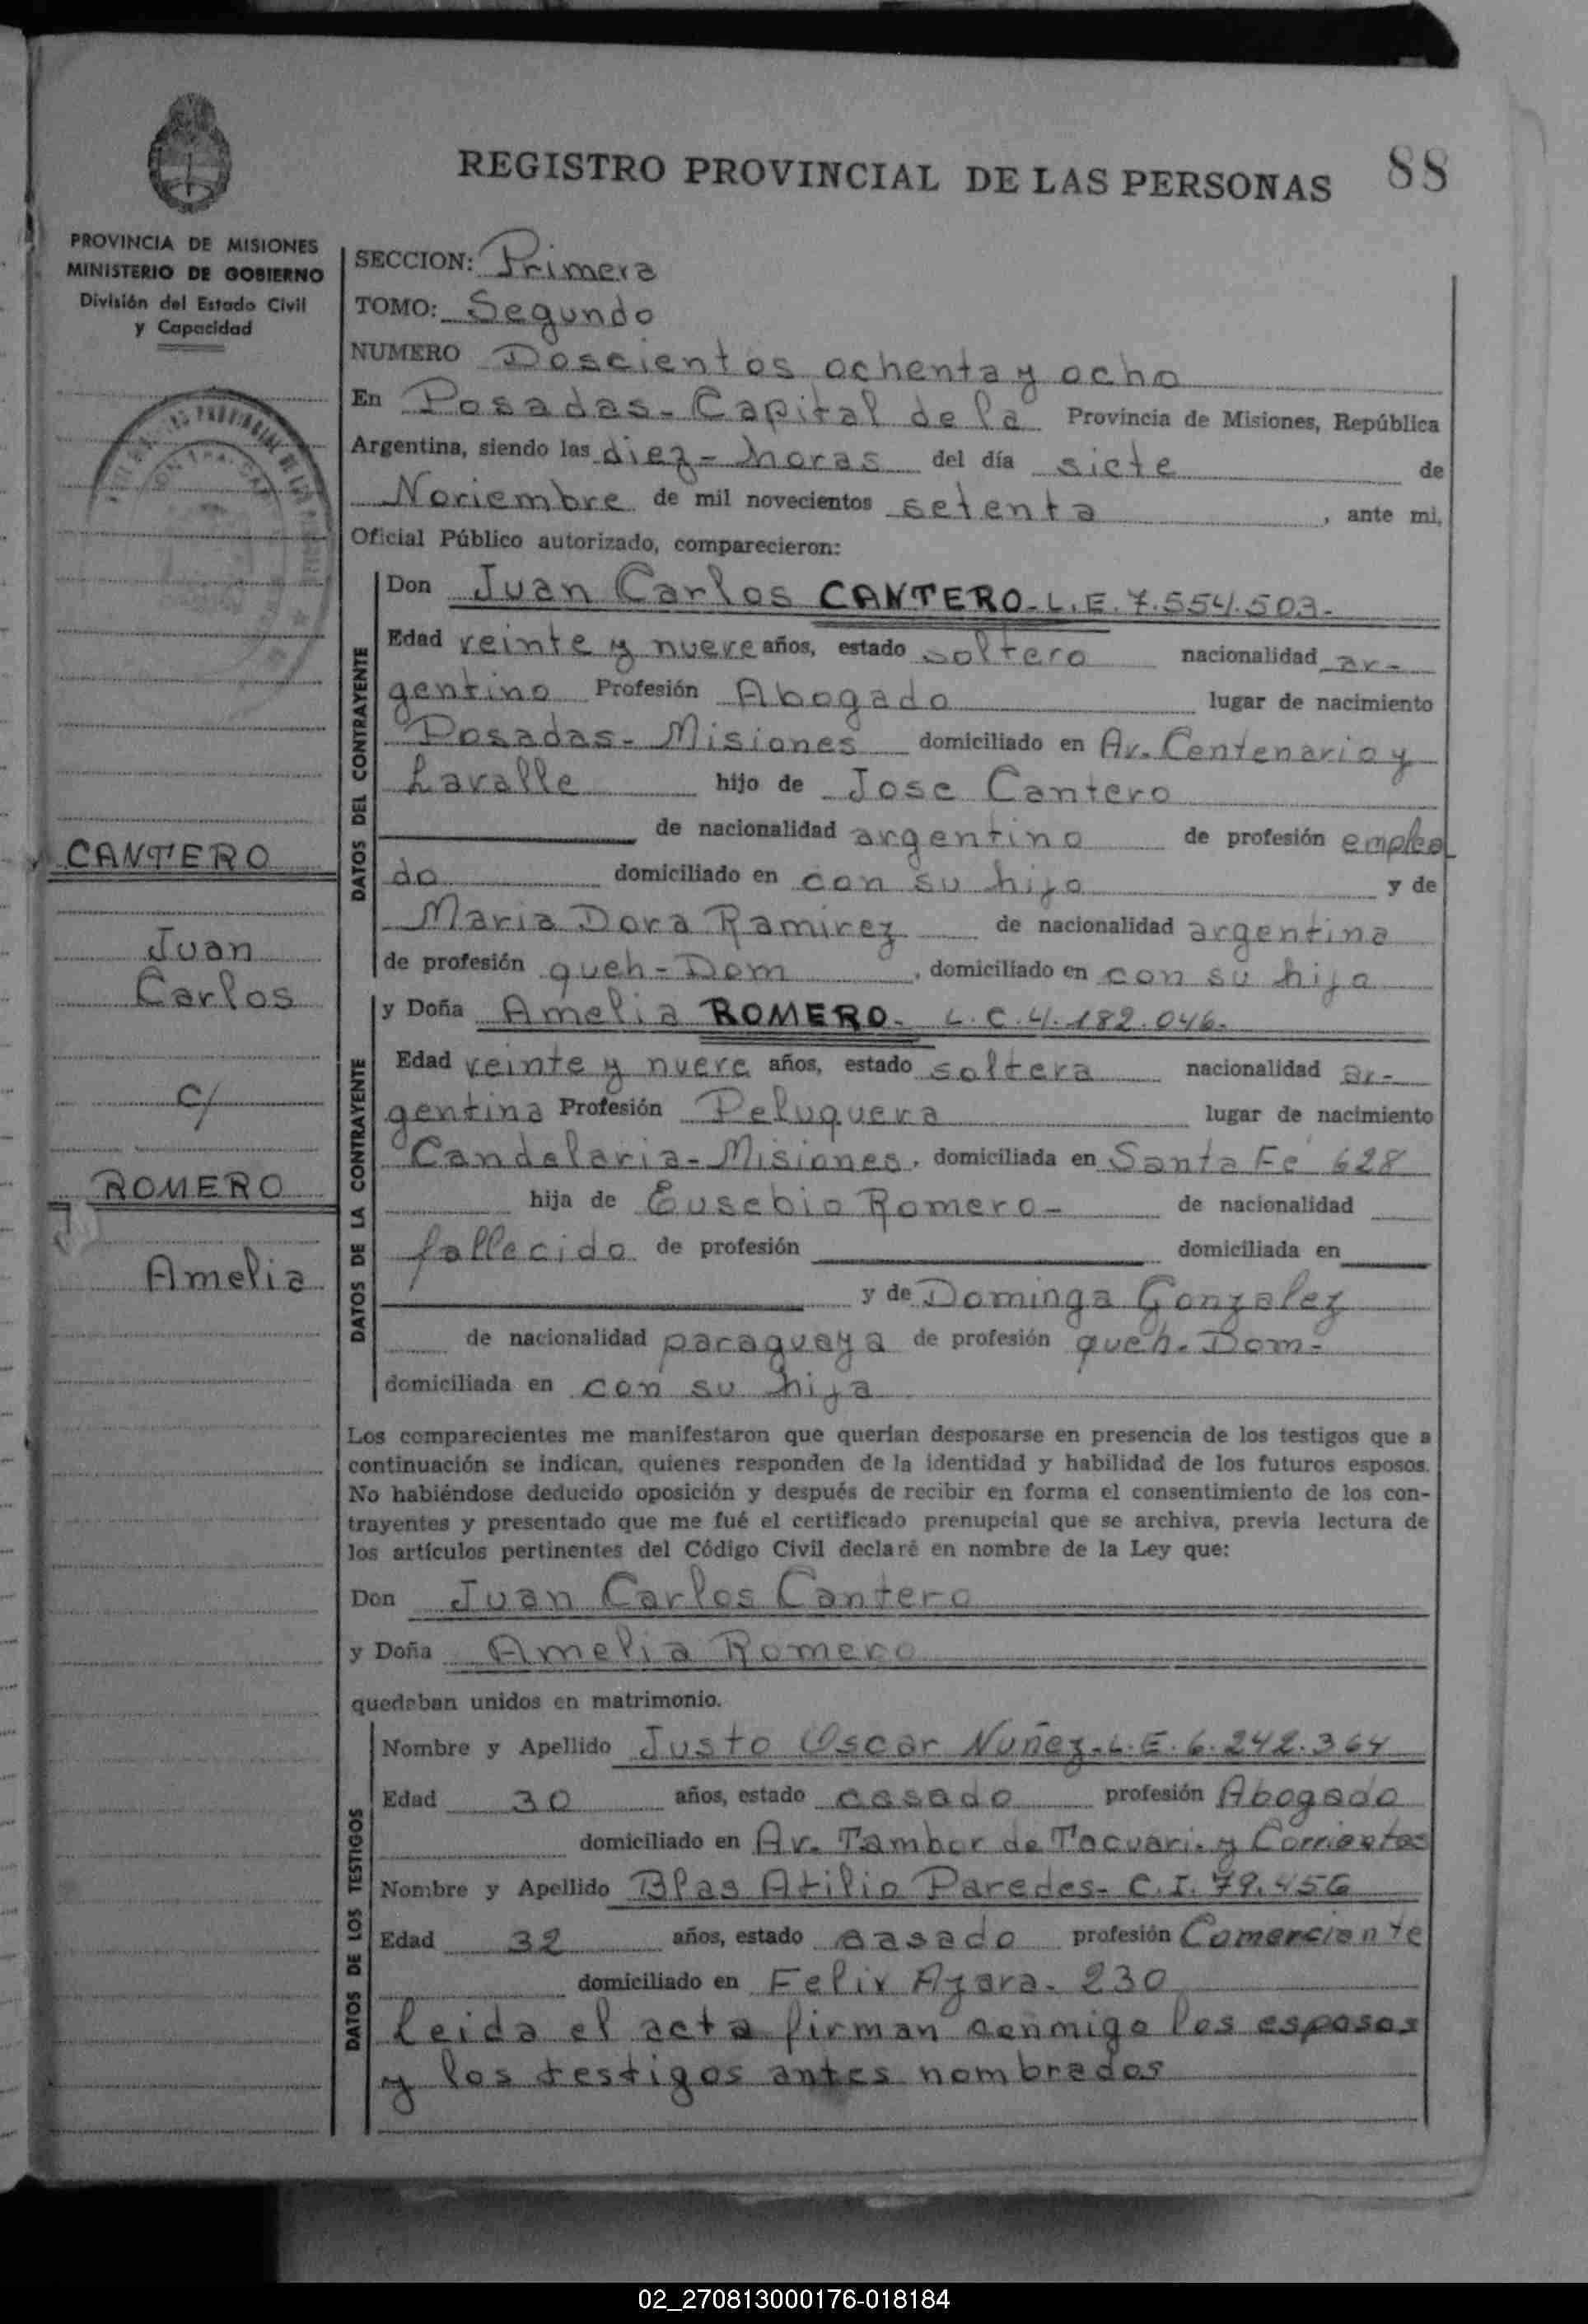 REGISTRO PROVINCIAL DE LAS PERSONAS 88
PROVINCIA DE MISIONES
MINISTERIO DE GOBIERNO
División del Estado Civil
y Capacidad
SECCION: Primera
TOMO: Segundo
NUMERO Doscientos ochenta y ocho
En Posadas - Capital de la Provincia de Misiones, República
Argentina, siendo las diez - horas del día siete de
Noviembre de mil novecientos setenta, ante mi,
Oficial Público autorizado, comparecieron:
DATOS DEL CONTRAYENTE
Don Juan Carlos CANTERO - L.E. 7.554.503.
Edad veinte y nueve años, estado soltero nacionalidad ar-
gentino Profesión Abogado lugar de nacimiento
Posadas - Misiones domiciliado en Av. Centenario y
Lavalle hijo de Jose Cantero
de nacionalidad argentino de profesión emplea
do domiciliado en con su hijo y de
Maria Dora Ramirez de nacionalidad argentina
de profesión queh - Dom, domiciliado en con su hijo
CANTERO
Juan
Carlos
c/
ROMERO
Amelia
DATOS DE LA CONTRAYENTE
y Doña Amelia ROMERO - L.C. 4.182.046.
Edad veinte y nueve años, estado soltera nacionalidad ar-
gentina Profesión Peluquera lugar de nacimiento
Candelaria - Misiones, domiciliada en Santa Fé 628
hija de Eusebio Romero - de nacionalidad
fallecido de profesión domiciliada en
y de Dominga Gonzalez
de nacionalidad paraguaya de profesión queh. Dom -
domiciliada en con su hija
Los comparecientes me manifestaron que querían desposarse en presencia de los testigos que a
continuación se indican, quienes responden de la identidad y habilidad de los futuros esposos.
No habiéndose deducido oposición y después de recibir en forma el consentimiento de los con-
trayentes y presentado que me fué el certificado prenupcial que se archiva, previa lectura de
los artículos pertinentes del Código Civil declaré en nombre de la Ley que:
Don Juan Carlos Cantero
y Doña Amelia Romero
quedaban unidos en matrimonio.
DATOS DE LOS TESTIGOS
Nombre y Apellido Justo Oscar Nuñez - L.E. 6.242.364
Edad 30 años, estado casado profesión Abogado
domiciliado en Av. Tambor de Tacuari. y Corrientes
Nombre y Apellido Blas Atilio Paredes - C.I. 79.456
Edad 32 años, estado casado profesión Comerciante
domiciliado en Felix Azara - 230
Leida el acta firman conmigo los esposos
y los testigos antes nombrados
02_270813000176-018184